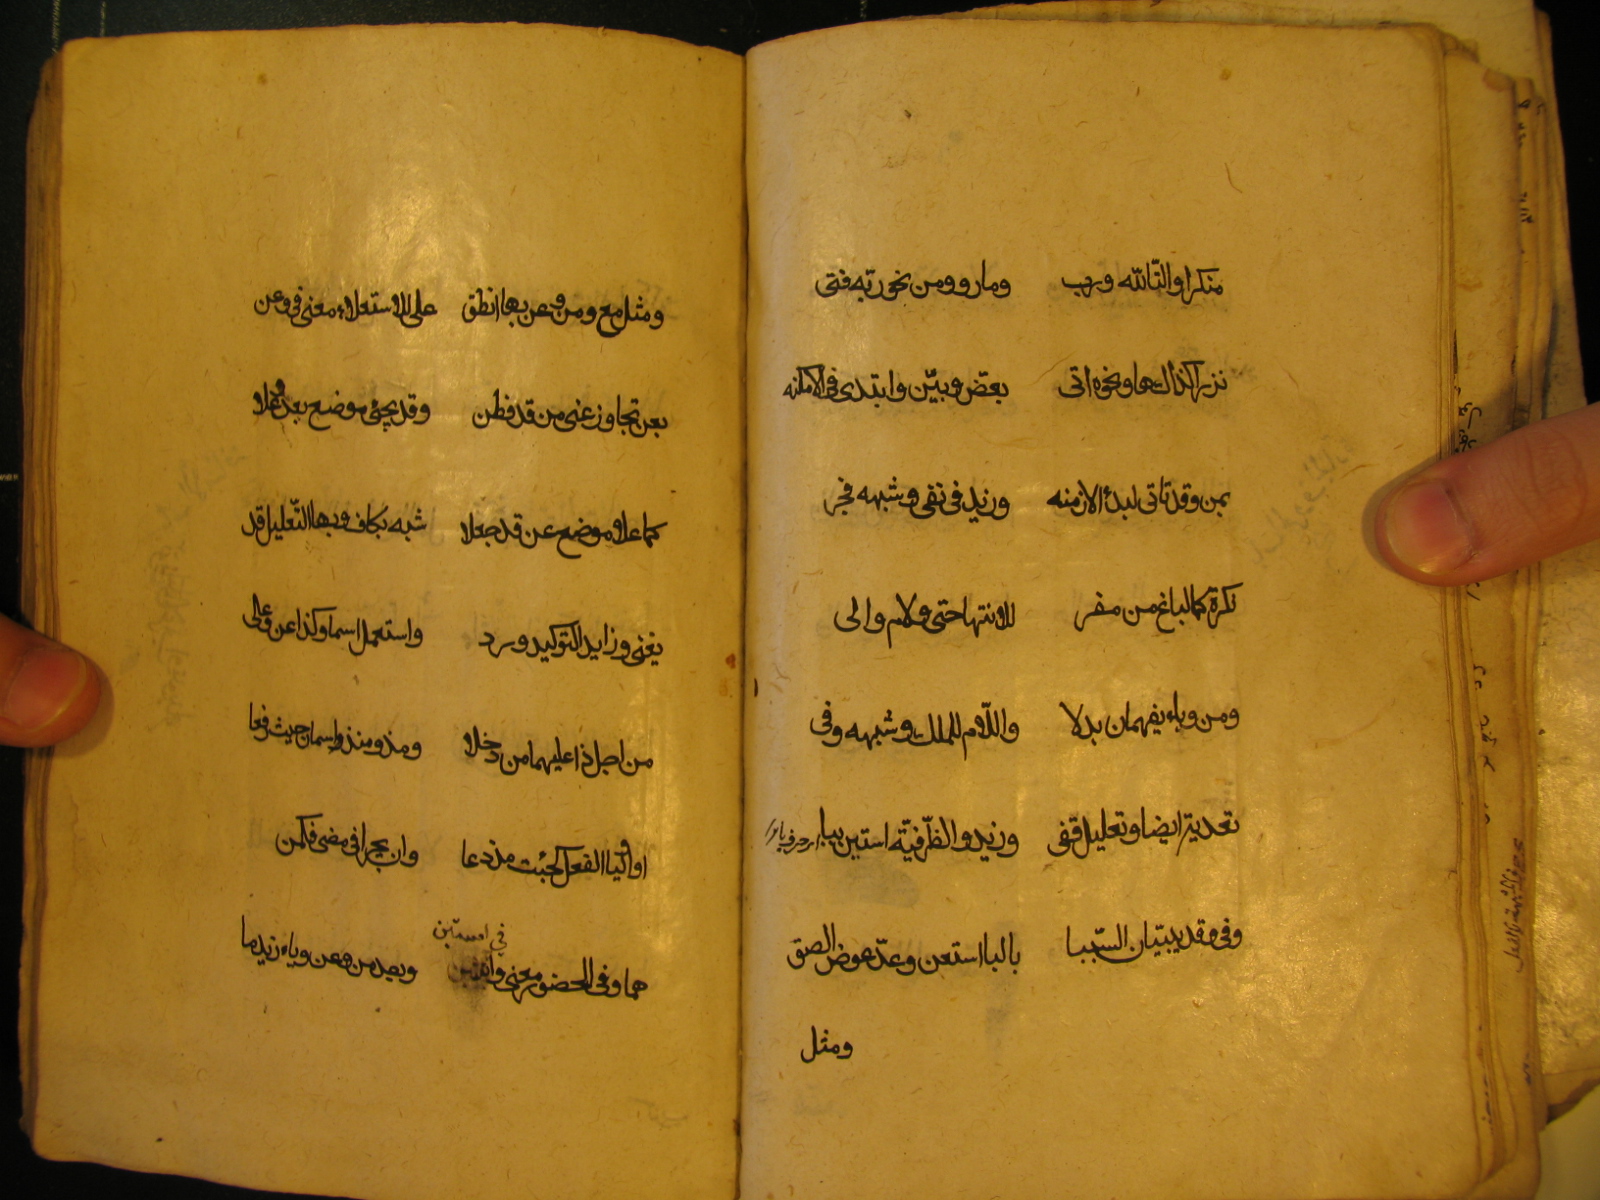 منكرا والتا لله ورب وما رووا ومن نحو ربه فتى
نزر كذاك ها ونحوه اتى بعض وبيّن وابتدى فى الامكنه
بمن وقد تاتى لبدأ الازمنه وزيد فى نفى وشبهه فجر
نكرة كما لباغ من مفر للانتها حتى ولام والى
ومن وباء يفهمان بدلا واللّام للملك وشبهه وفى
تعدية ايضا وتعليل قفى وزيد والظّرفيّة استبن ببا
وفى وقد يبيّنان السّببا بالبا استعن وعدّ عوض الصق
ومثل
ومثل مع ومن وعن بها انطق على للاستعلاء ومعنى فى وعن
بعن تجاوز عنى من قد فطن وقد يجئ موضع بعد وعلا
كما علا موضع عن قد جعلا شبه بكاف وبها التّعليل قد
يغنى وزايد التوكيد ورد واستعمل اسما وكذا عن وعلى
من اجل ذا عليهما من دخلا ومذ ومنذ اسمان حيث رفعا
او اوليا الفعل كجئت مذ دعا وان يجرا فى مضى فكمن
فى استبن
هما وفى الحضور معنى وبعد من وعن وباء زيد ما